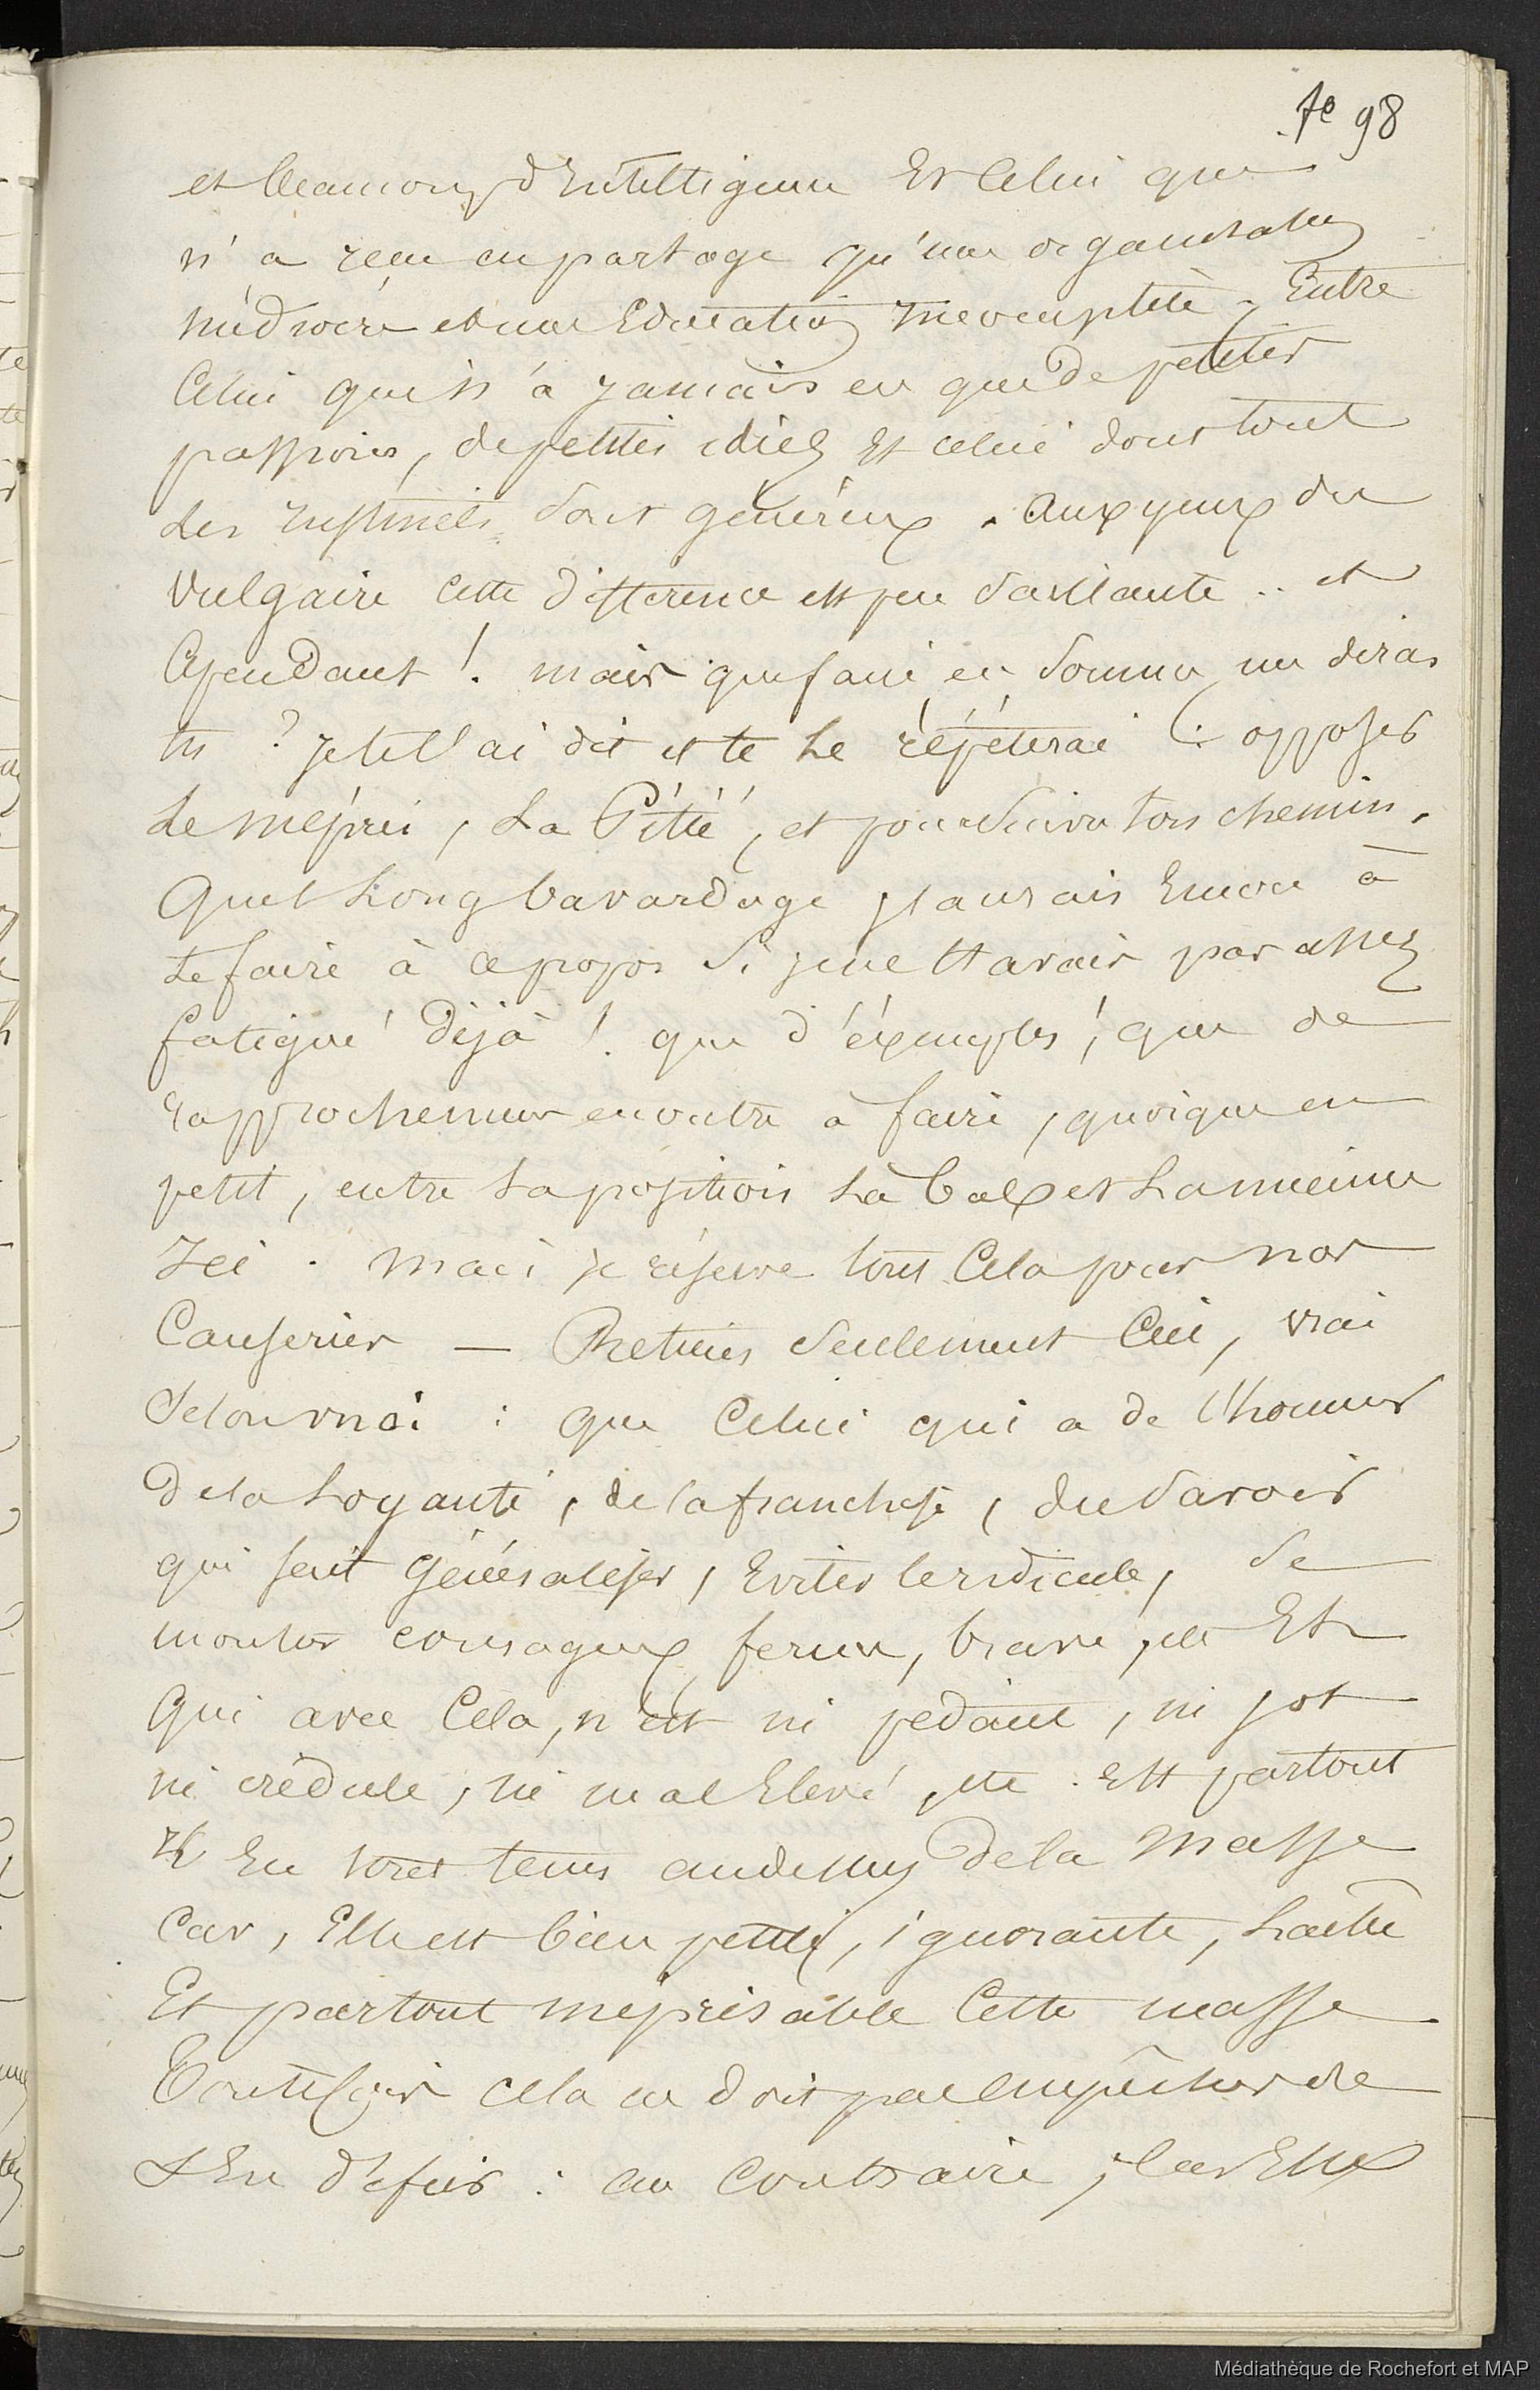 fo 98
et beaucoup d'Intelligence Et Celui qui
n'a reçu en partage qu'une organisation
médiocre et une Education Incomplète ; Entre
Celui qui n'a jamais eu que de petites
passions, de petites idées Et celui dont tout
Les Instincts Sont généreux . aux yeux du
Vulgaire cette différence est peu Saillante .. et
Cependant ! mais que faire en Somme me diras
tu ? je te l'ai dit et te Le répéterai : opposer
Le mépris, La Pitié, et poursuivre ton chemin .
Quel Long bavardage j'aurais Encore à
te faire à ce propos Si je ne t'avais pas assez
fatigué déjà ! que d'éxemples ! que de
rapprochemens en outre à faire, quoique en
petit, entre ta position Là bas et La mienne
Ici . Mais je réserve tout Cela pour nos
Causeries — Retiens Seulement Ceci, vrai
Selon moi : que Celui qui a de l'honneur
de la Loyauté, de la franchise, du Savoir
qui sait généraliser, Eviter le ridicule, Se
montrer courageux, ferme, brave, etc Et
Qui avec Cela, n'est ni pédant, ni sot
ni crédule, ni mal Elevé, etc . Est partout
Et En tout tems audessus de la Masse
Car, Elle est bien petite, ignorante, Lache
Et partout méprisable Cette masse
Toutefois cela ne doit pas empêcher de
S'En défier : au Contraire, Car Elle